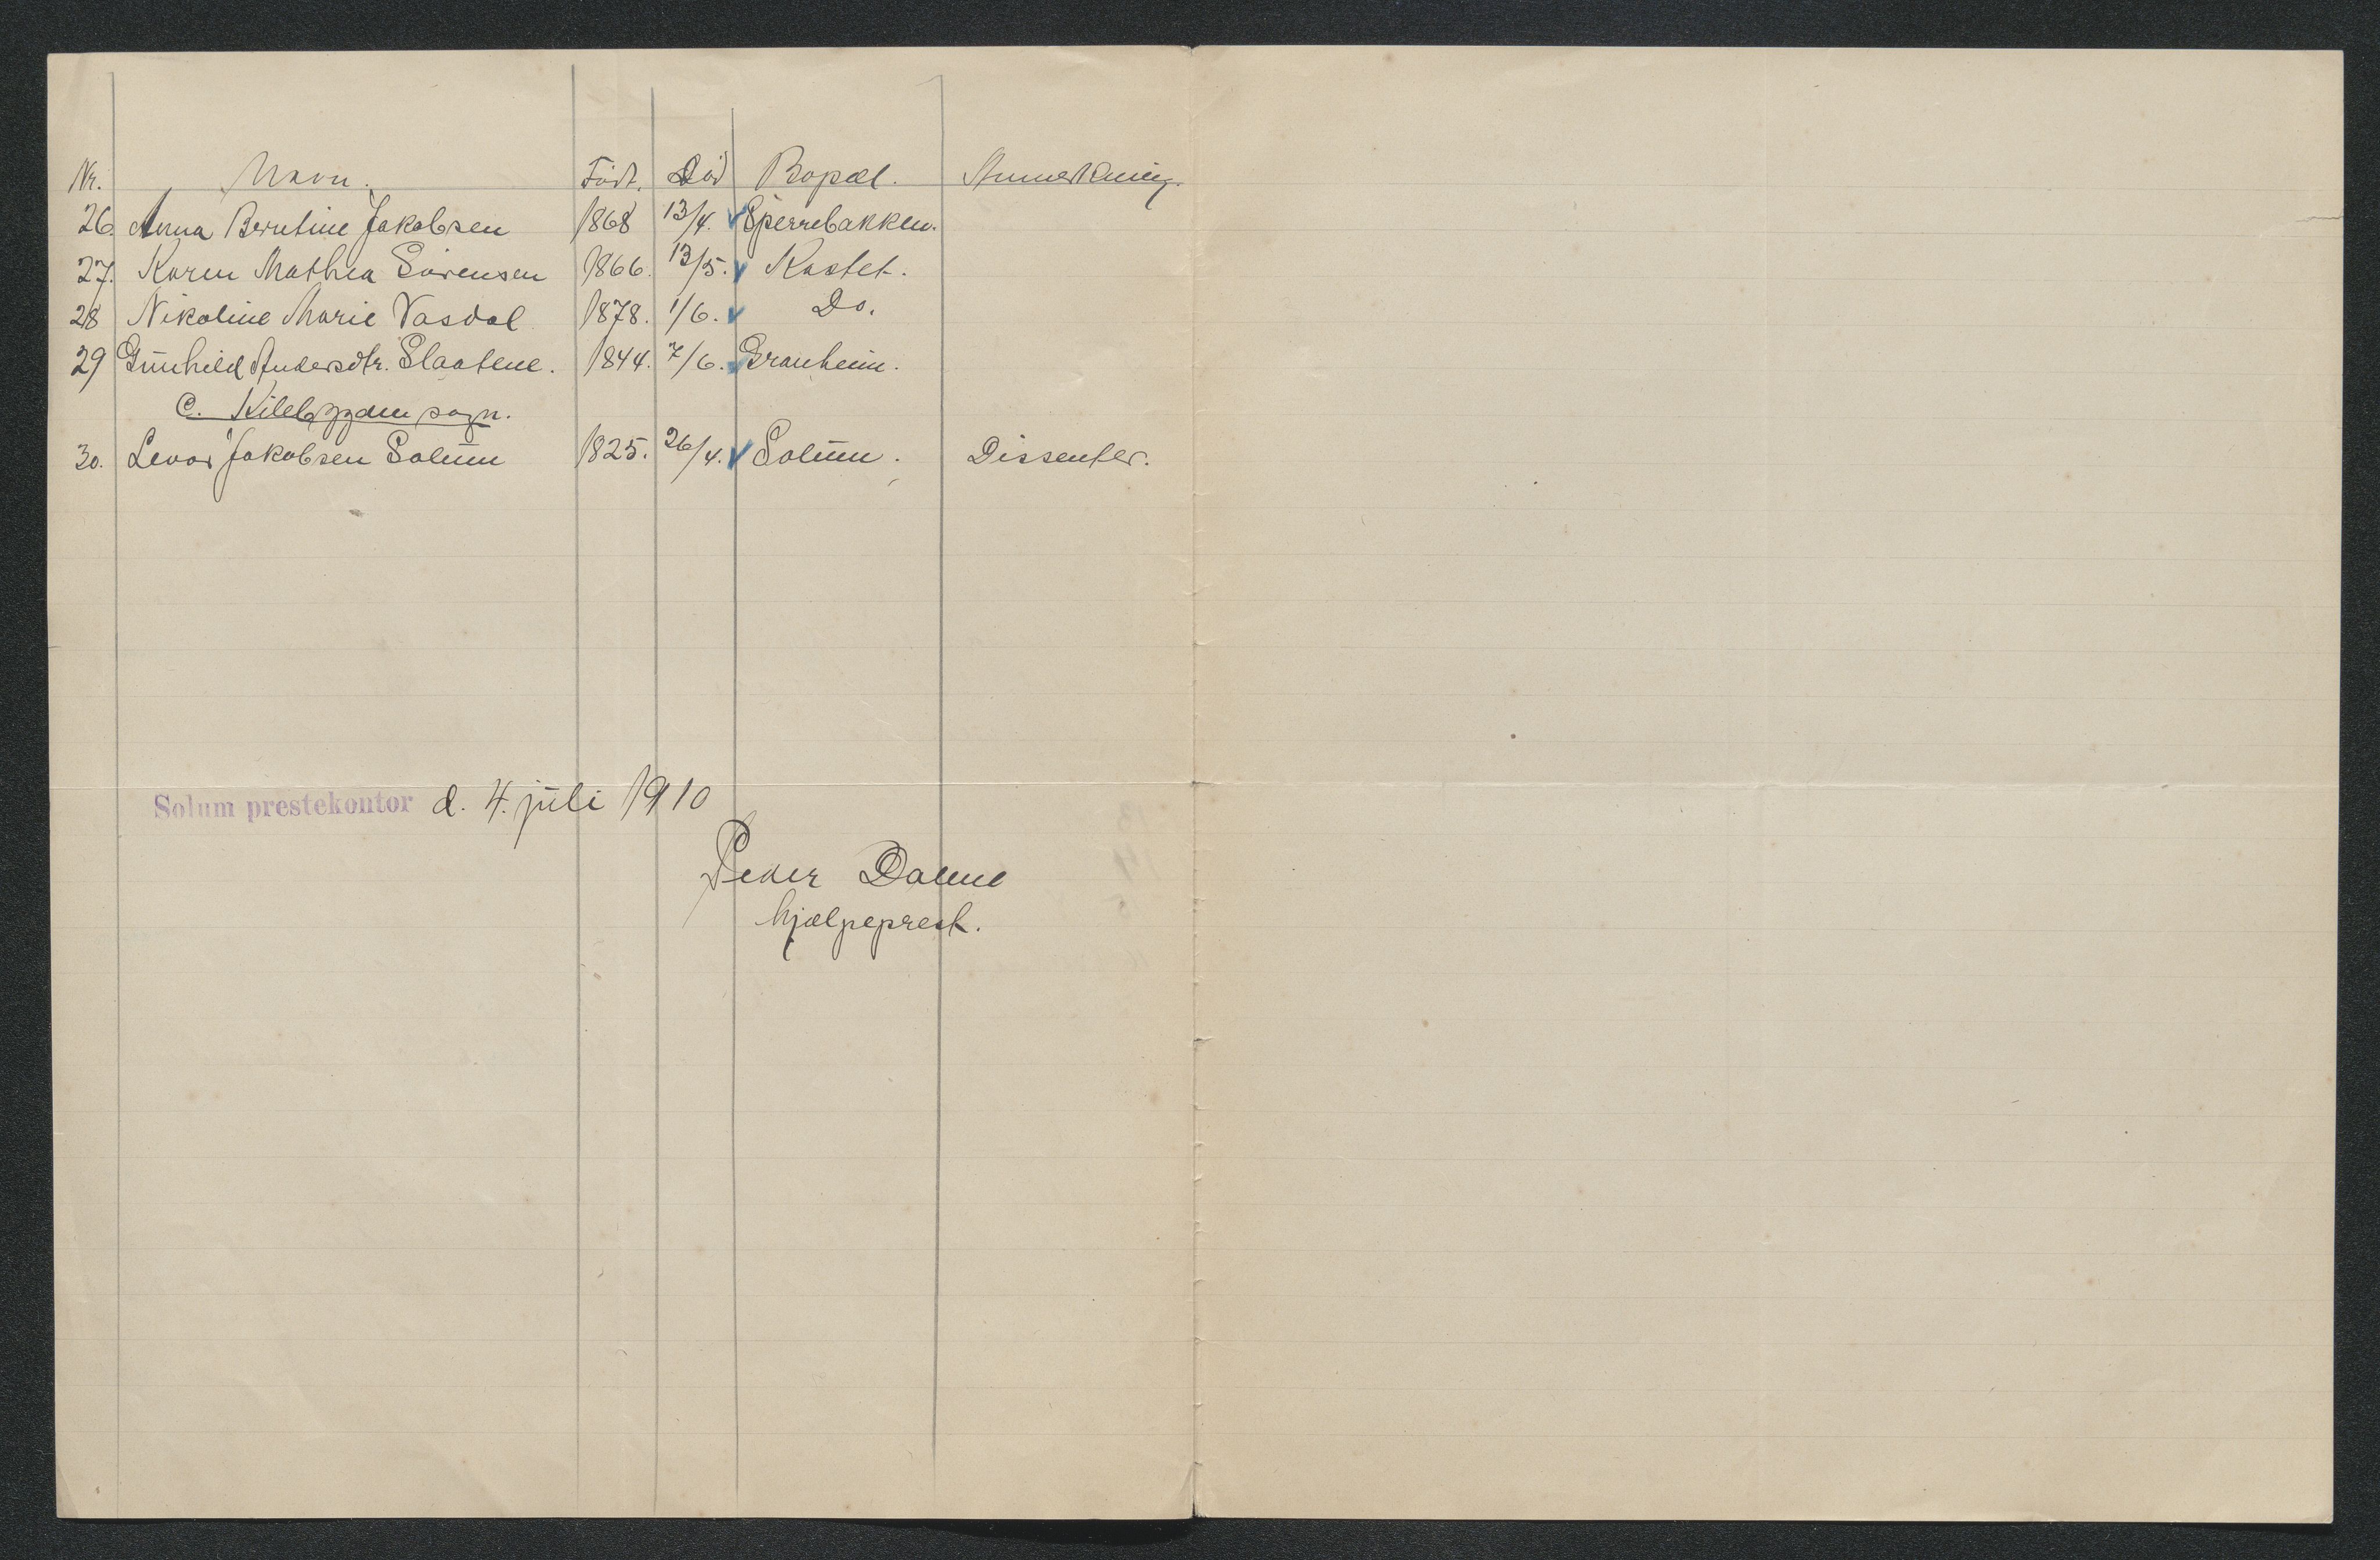 Nr. Navn. Född. Död Bopæl. Anmerkning.
26. Anna Berntine Jakobsen 1868 13/4. Sperrebakken.
27. Karen Mathea Sörensen 1866. 13/5. Kastet.
28 Nikoline Marie Vasdal 1878. 1/6. Do.
29 Gunhild Andersdtr. Slaatene. 1844. 7/6. Granheim.
C. Kilebygden sogn.
30. Levor Jakobsen Solum 1825. 26/4. Solum. Dissenter.
Solum prestekontor d. 4. juli 1910
Peder
hjælpeprest.